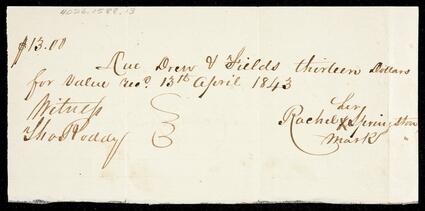 4026.1588.13
$13.00
Due Drew & Fields thirteen Dollars
for Value recd. 13th April 1843
Witness
Tho Roddy
her
Rachel X Springston
mark